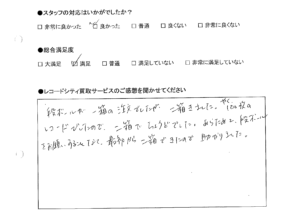 ●スタッフの対応はいかがでしたか?
□ 非常に良かった ☑ 良かった □ 普通 □ 良くない □ 非常に良くない
●総合満足度
□ 大満足 ☑ 満足 □ 普通 □ 満足していない □ 非常に満足していない
●レコードシティ買取サービスのご感想を聞かせてください
段ボールは一箱の注文でしたが 二箱きました。 120枚の
レコードでしたので、二箱でちょうどでした。あらためて、段ボール
をお願いすることなく、最初から二箱できたので助かりました。